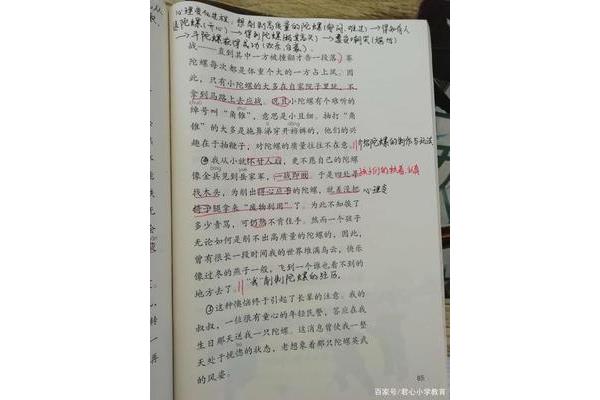 心理变化过程：想削制高质量的陀螺(
陀螺(开心)→得到陀螺
→斗陀螺获得成功(欢乐、自豪)。
战——直到其中一方被撞翻才告一段落。赛
陀螺每次都是体重个大的一方占上风。因
此，只有小陀螺的大多在自家院子里玩，不
拿到马路上去应战。况且小陀螺有个难听的
绰号叫“角锥”，意思是小且细。抽打“角
锥”的大多是拖鼻涕穿开裆裤的，他们的兴
趣在于抽鞭子，对陀螺的质量往往不在意。
介绍陀螺的制作与玩法
④我从小就不甘人后，更不愿自己的陀螺
像金兵见到岳家军，一战即溃。于是四处寻
孩子们的执着、认真
找木头，为削出得心应手的陀螺，就差没把
心理变
椅子腿拿来“废物利用”了。为此不知挨了
多少责骂，可仍然不肯住手。然而一个孩子
无论如何是削不出高质量的陀螺的，因此，
曾有很长一段时间我的世界堆满乌云，快乐
像过冬的燕子一般，飞到一个谁也看不到的
地方去了。
“我”削制陀螺的经历
⑤这种懊恼终于引起了长辈的注意。我的
叔叔，一位很有童心的年轻民警，答应在我
生日那天送我一只陀螺。这消息曾使我一整
天处于恍惚的状态，老想象着那只陀螺英武
的风姿。
65
百家号/君心小学教育